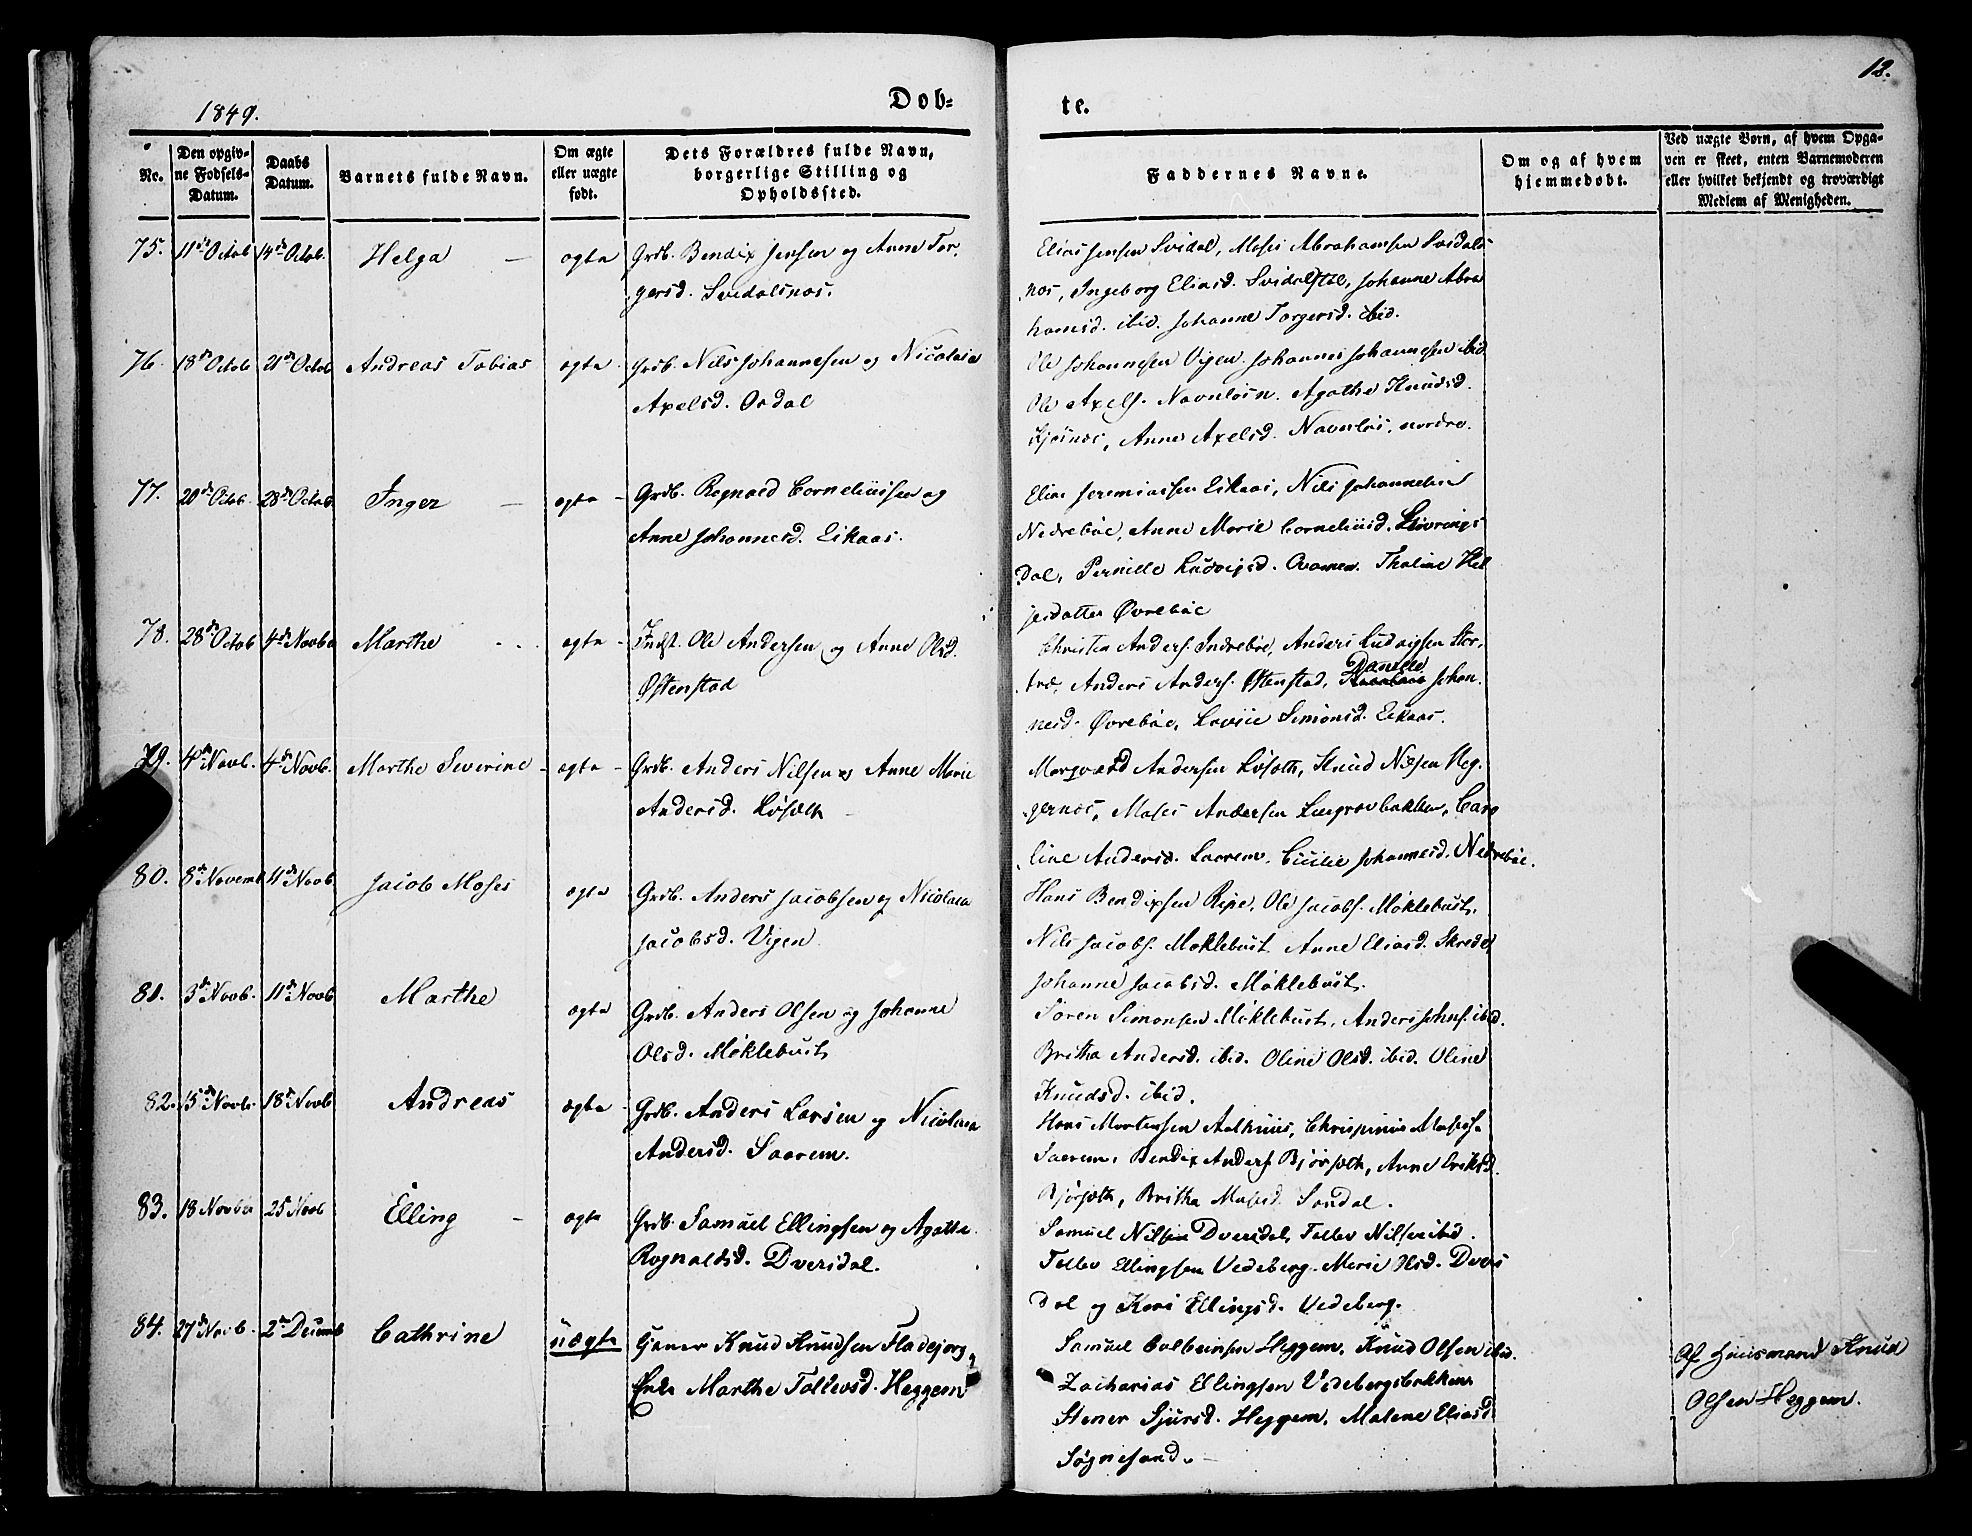 1849.
Dob-
te.
12.
No.
Den opgiv-
ne Fødsels-
Datum.
Daabs
Datum.
Barnets fulde Navn.
Om ægte
eller uægte
født.
Dets Forældres fulde Navn,
borgerlige Stilling og
Opholdssted.
Faddernes Navne.
Om og af hvem
hjemmedøbt.
Ved uægte Børn, af hvem Opga-
ven er skeet, enten Barnemoderen
eller hvilket bekjendt og troværdigt
Medlem af Menigheden.
75. 11te Octob 14de Octob. Helga — ægte Grdb. Bendix Jensen og Anne Tor,
gersd. Svidalsnæs.
Elias Jensen Svidal, Moses Abrahamsen Svidals
næs, Ingeborg Eliasd. Svidalstøl, Johanne Abra
hamsd. ibid. Johanne Torgersd. ibid.
76. 18de Octob 21de Octob Andreas Tobias ægte Grdb. Nils Johannesen og Nicolaia
Axelsd. Ordal
Ole Johannesen Vigen. Johannes Johannesen ibid
Ole Axels. Navnløsn. Agathe Knudsd.
Kjøsnæs, Anne Axelsd. Navnløs, nordre.
77. 20de Octob. 28de Octob. Inger — ægte - Grdb. Rognald Corneliussen og
Anne Johannesd. Eikaas.
Elias Jeremiassen Eikaas, Nils Johannesen
Nedrebøe, Anne Marie Corneliusd. Livrings
dal, Pernille Ludvigsd. Thaline Hel
jesdatter Øvrebøe
78. 28de Octob 4de Novb Marthe ægte - Indst. Ole Andersen og Anne Olsd.
Østenstad
Christen Anders. Indrebøe, Anders Ludvigsen Stor,
træ, Anders Anders. Østenstad, Danele Johan.
nesd. Øvrebøe, Lovise Simonsd. Eikaas.
79. 4de Novb. 4de Novb. Marthe Severine - ægte - Grdb. Anders Nilsen og Anne Marie
Andersd. Løseth
Margvard Andersen Løseth, Knud Nilsen Heg.
gernæs, Moses Andersen Caro
line Andersd. Saarem. Cicilie Johannesd. Nedrebøe.
80. 8de Novemb 11de Novb. Jacob Moses ægte Grdb. Anders Jacobsen og Nicolaia
Jacobsd. Vigen
Hans Bendixsen Ripe, Ole Jacobs. Møklebust,
Nils Jacobs. Møklebust Anne Eliasd. Skrede,
Johanne Jacobsd. Møklebust.
81. 3de Novb. 11de Novb Marthe ægte Grdb. Anders Olsen og Johanne
Olsd. Møklebust
Søren Simonsen Møklebust, Anders Johns. ibid.
Britha Andersd. ibid. Oline Olsd. ibid. Oline
Knudsd. ibid.
82. 15de Novb. 18de Novb Andreas ægte - Grdb. Anders Larsen og Nicolaia
Andersd. Saarem.
Hans Mortensen Aalhuus, Chrispinus Moses.
Saarem, Bendix Anders Bjørseth, Anne Eriksd.
Bjørseth, Britha Mosesd. Sandal.
83. 18 Novber 25 Novb Elling - ægte Grdb. Samuel Ellingsen og Agatha
Rognaldsd. Dversdal.
Samuel Nilsen Dversdal, Tollev Nilsen ibid.
Tollev Ellingsen Vedeberg. Marie Olsd. Dvers
dal og Kari Ellingsd. Vedeberg.
84. 27de Novb. 2den Decemb Cathrine uægte Gjener Knud Knudsen Fladejorg,
Enke Marthe Tollevsd. Heggem
Samuel Colbeinsen Heggem, Knud Olsen ibid.
Zacharias Ellingsen Vedebergsbakken
Stener Sjursd. Heggem, Malene Eliasd
Søgnesand. —
Af Huusmand Knud
Olsen Heggem.